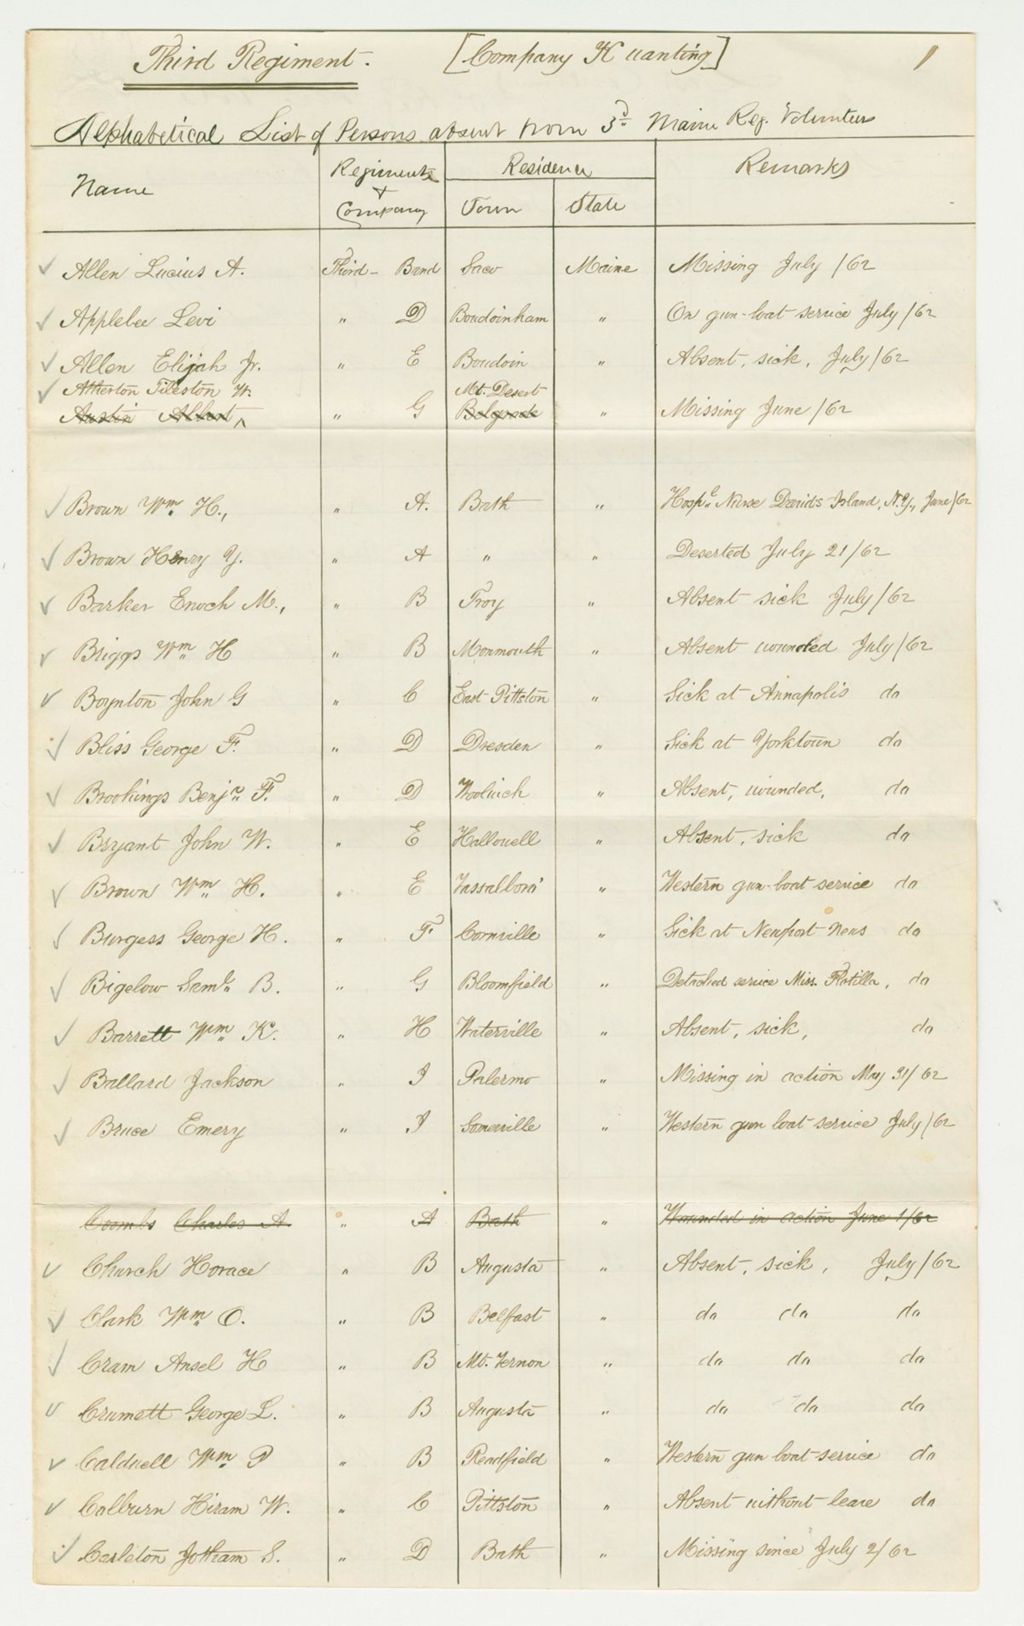 Third Regiment. [Company K wanting] 1
Alphabetical List of Persons absent from 3d Maine Reg. Volunteers
Name Regiment & Company Residence Town State Remarks
✓ Allen Lucius A. Third - Band Saco Maine Missing July /62
✓ Applebee Levi " D Bowdoinham " On gun-boat service July /62
✓ Allen Elijah Jr. " E Bowdoin " Absent, sick, July /62
✓ Atherton Tileston W. Mt. Desert
Austin Albert, ^ " G Belgrade " Missing June /62
✓ Brown Wm. H., " A. Bath " Hospl. Nurse Davids Island, N.Y., June /62
✓ Brown Henry Y. " A " " Deserted July 21/62
✓ Barker Enoch M., " B Troy " Absent sick July /62
✓ Briggs Wm H " B Monmouth " Absent wounded July /62
✓ Boynton John G " C East Pittston " Sick at Annapolis do
✓ Bliss George F. " D Dresden " Sick at Yorktown do
✓ Brookings Benjn. F. " D Woolwich " Absent, wounded, do
✓ Bryant John W. " E Hallowell " Absent, sick do
✓ Brown Wm H. " E Vassalboro' " Western gun-boat service do
✓ Burgess George H. " F Cornville " Sick at Newport News do
✓ Bigelow Saml. B. " G Bloomfield " Detached service Miss. Flotilla, do
✓ Barrett Wm K. " H Waterville " Absent, sick, do
✓ Ballard Jackson " I Palermo " Missing in action May 31/62
✓ Bruce Emery " I Somerville " Western gun boat service July /62
Coombs Charles A. " A Bath " Wounded in action June 1/62
✓ Church Horace " B Augusta " Absent, sick, July /62
✓ Clark Wm O. " B Belfast " do do do
✓ Cram Ansel H " B Mt. Vernon " do do do
✓ Crumett George L. " B Augusta " do do do
✓ Caldwell Wm P " B Readfield " Western gun boat service do
✓ Colburn Hiram W. " C Pittston " Absent without leave do
✓ Carleton Jotham S. " D Bath " Missing since July 2/62